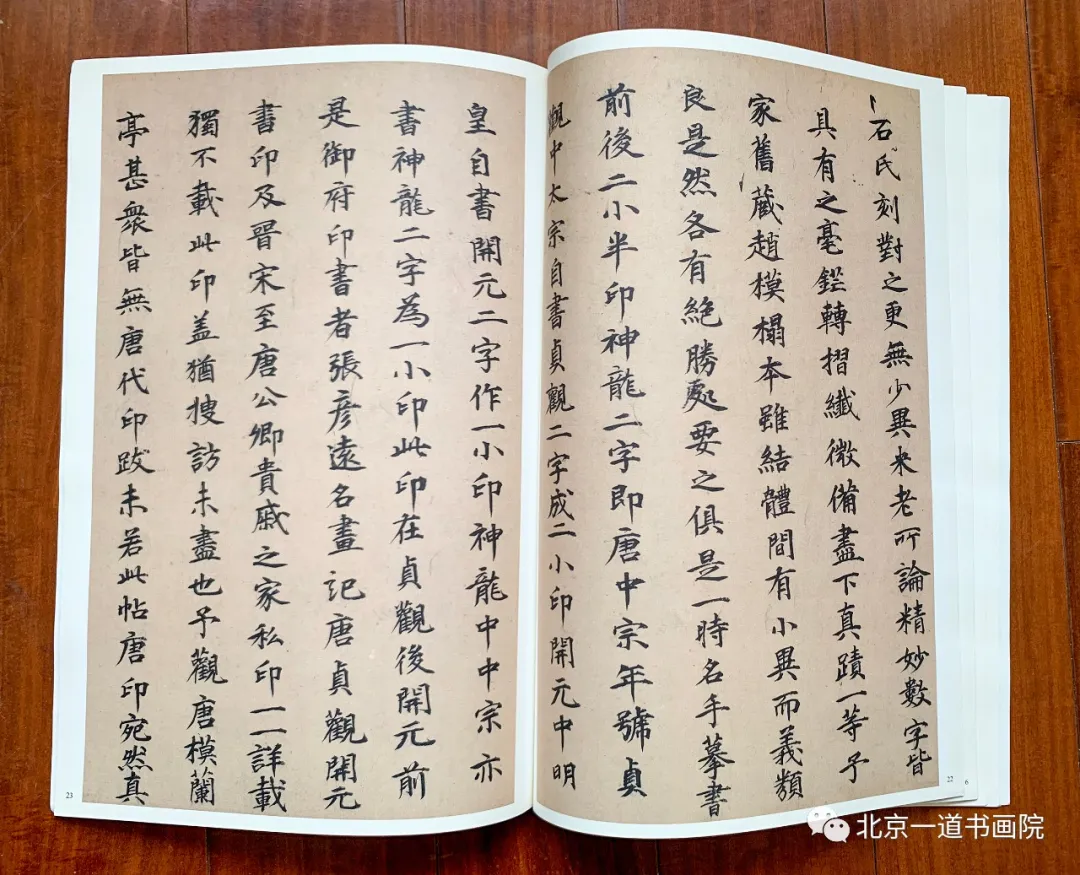 石氏刻對之更無少異米老所論精妙數字皆
具有之毫鋩轉摺纖微備盡下真蹟一等予
家舊藏趙模榻本雖結體間有小異而義類
良是然各有絕勝處要之俱是一時名手摹書
前後二小半印神龍二字即唐中宗年號貞
觀中太宗自書貞觀二字成二小印開元中明
皇自書開元二字作一小印神龍中中宗亦
書神龍二字為一小印此印在貞觀後開元前
是御府印書者張彥遠名畫記唐貞觀開元
書印及晉宋至唐公卿貴戚之家私印一一詳載
獨不載此印盖猶搜訪未盡也予觀唐模蘭
亭甚衆皆無唐代印跋未若此帖唐印宛然真
23
22
6
北京一道书画院